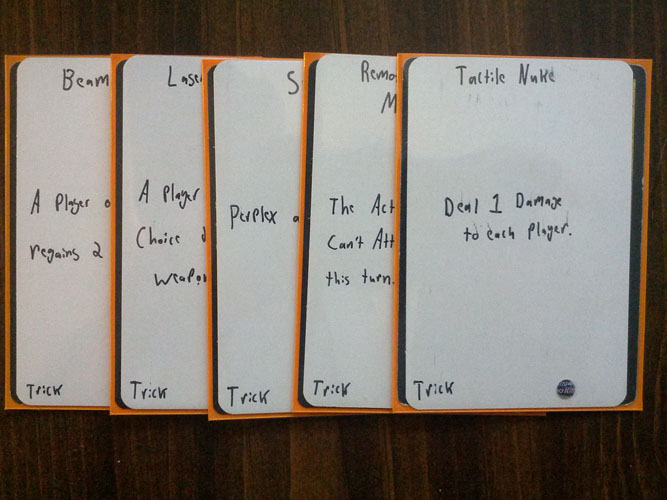 Beam
A Player
regains 2
Trick
Lase
A Player
Choice
weapon
Trick
S
Perplex a
Trick
Remo
M
The Act
Can't Att
this turn.
Trick
Tactile Nuke
Deal 1 Damage
to each player.
Trick